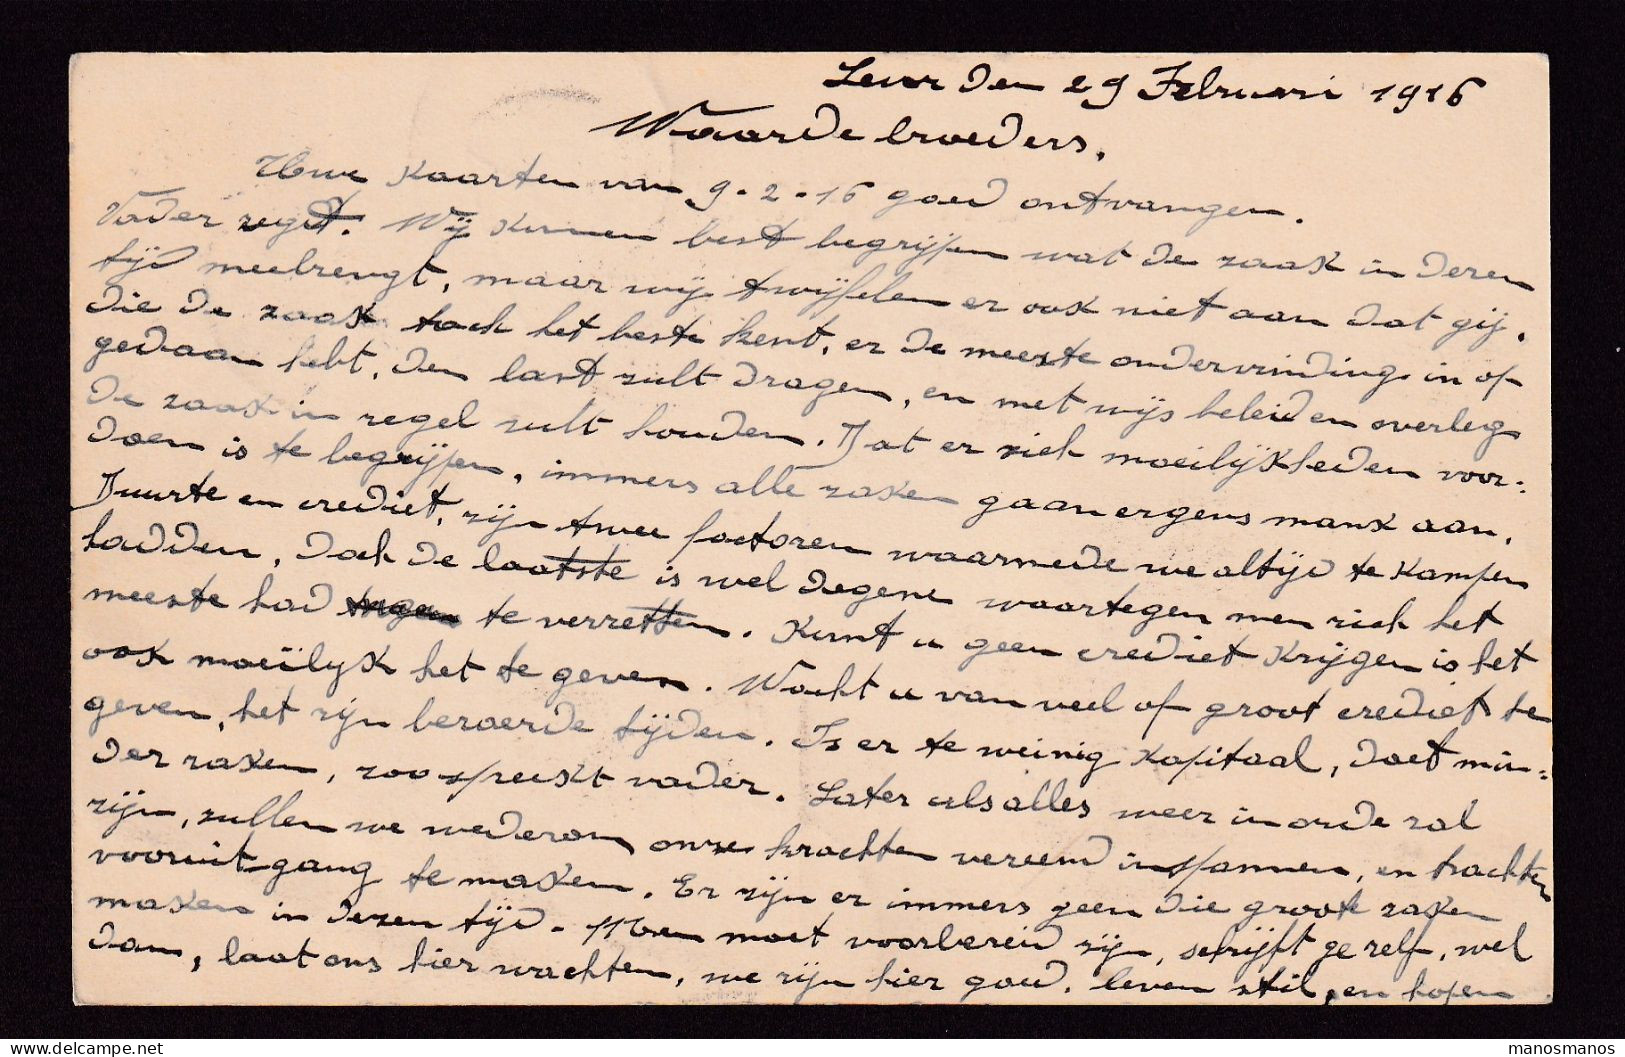 den 29 Februari 1916
Waarde broeders.
Uwe kaarten van 9-2-16 goed ontvangen.
Vader zegt. Wij kunnen best begrijpen wat de zaak in dezen
tijd meebrengt, maar wij twijfelen er ook niet aan dat gij.
die de zaak toch het beste kent, er de meeste ondervinding in op
gedaan hebt, den last zult dragen, en met wijs beleid en overleg
de zaak in regel zult houden. Dat er zich moeilijkheden voor:
doen is te begrijpen, immers alle zaken gaan ergens mank aan.
Duurte en crediet, zijn twee factoren waarmede we altijd te kampen
hadden, doch de laatste is wel degene waartegen men zich het
meeste had te verzetten. Kunt u geen crediet krijgen is het
ook moeilijk het te geven. Wacht u van veel of groot crediet te
geven, het zijn beroerde tijden. Is er te weinig kapitaal, doet min=
der zaken, zoo spreekt vader. Later als alles weer in orde zal
zijn, zullen we wederom onze krachten vereend inspannen, en trachten
vooruitgang te maken. Er zijn er immers geen die groote zaken
maken in dezen tijd. Men moet voorbereid zijn, schrijft ge zelf, wel
dan, laat ons hier wachten, we zijn hier goed. leven stil, en hopen
manosmanos